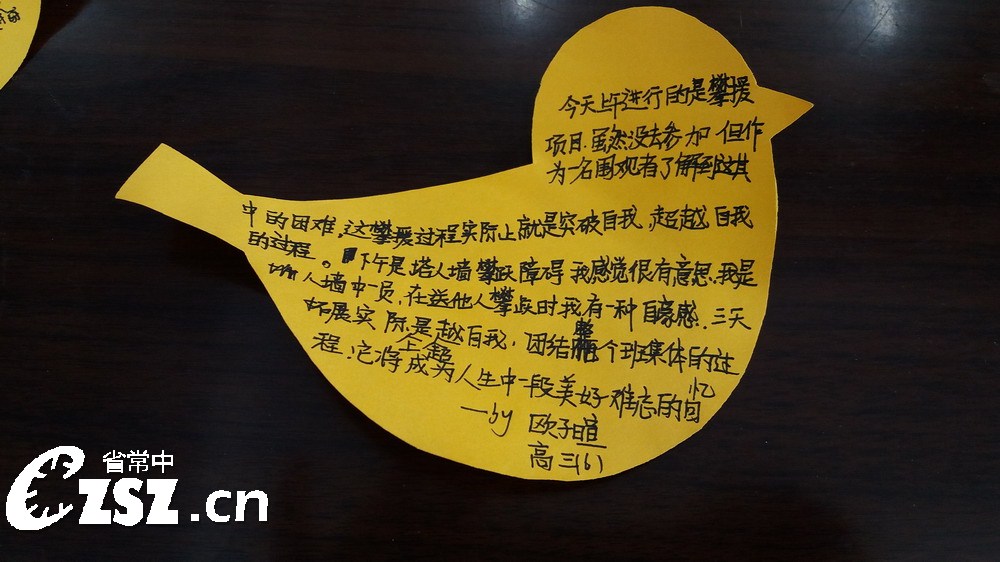 今天上午进行的是攀援
项目.虽然没去参加 但作
为一名围观者了解到这其
中的困难,这攀援过程实际上就是突破自我,超越自我
的过程。下午是塔人墙攀跃障碍 我感觉很有意思.我是
人墙中一员,在送他人攀跃时我有一种自豪感.三天
拓展实际上是超越自我,团结整个班集体的过
程.它将成为人生中一段美好难忘的回忆
—by 欧子暄
高三(6)
省常中
CZSZ.cn